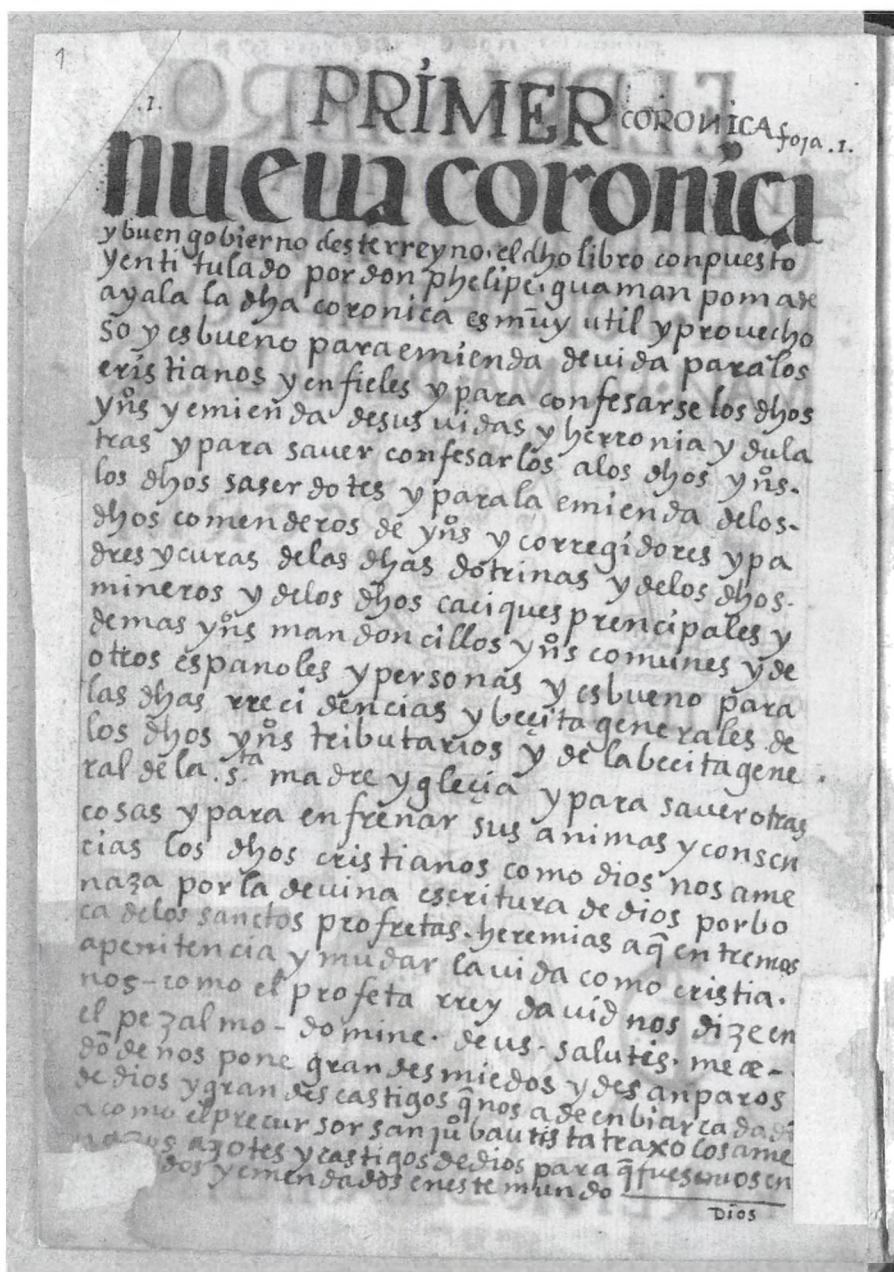 1
.I. PRIMER CORONICA foja .I.
nueua coronica
y buen gobierno deste rreyno. el dho libro conpuesto
y entitulado por don phelipe guaman poma de
ayala la dha coronica es muy util y provecho
so y es bueno para emienda de uida para los
cristianos y enfieles y para confesarse los dhos
yn̊s y emienda de sus uidas y herronia ydula
tras y para sauer confesarlos a los dhos yn̊s.
los dhos saserdotes y para la emienda de los-
dhos comenderos de yn̊s y corregidores y pa
dres y curas de las dhas dotrinas y de los dhos.
mineros y de los dhos caciques prencipales y
demas yn̊s mandoncillos yn̊s comunes y de
otros espanoles y personas y es bueno para
las dhas rrecidencias y becita generales de
los dhos yn̊s tributarios y de la becita gene
ral de la .s.ta madre yglecia y para sauer otras
cosas y para enfrenar sus animas y consen
cias los dhos cristianos como dios nos ame
naza por la deuina escritura de dios por bo
ca de los sanctos profretas. heremias a q̄ entremos
a penitencia y mudar la uida como cristia.
nos- como el profeta rrey dauid nos dize en
el pezalmo- domine. deus. salutis. meæ-
dõde nos pone grandes miedos y desanparos
de dios y grandes castigos q̄ nos a de enbiar cada di
a como el precursor san jů bautista traxo los ame
nazos azotes y castigos de dios para q̄ fuesemos en
dos y emendados en este mundo
Dios